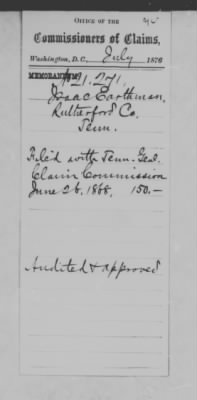 OFFICE OF THE
Commissioners of Claims,
Washington, D.C., July 1876
MEMORANDUM
121.271.
Isaac Earthman,
Rutherford Co.
Tenn.
Filed with Tenn. Genl.
Claim Commission
June 26, 1868, 150.—
Audited & approved